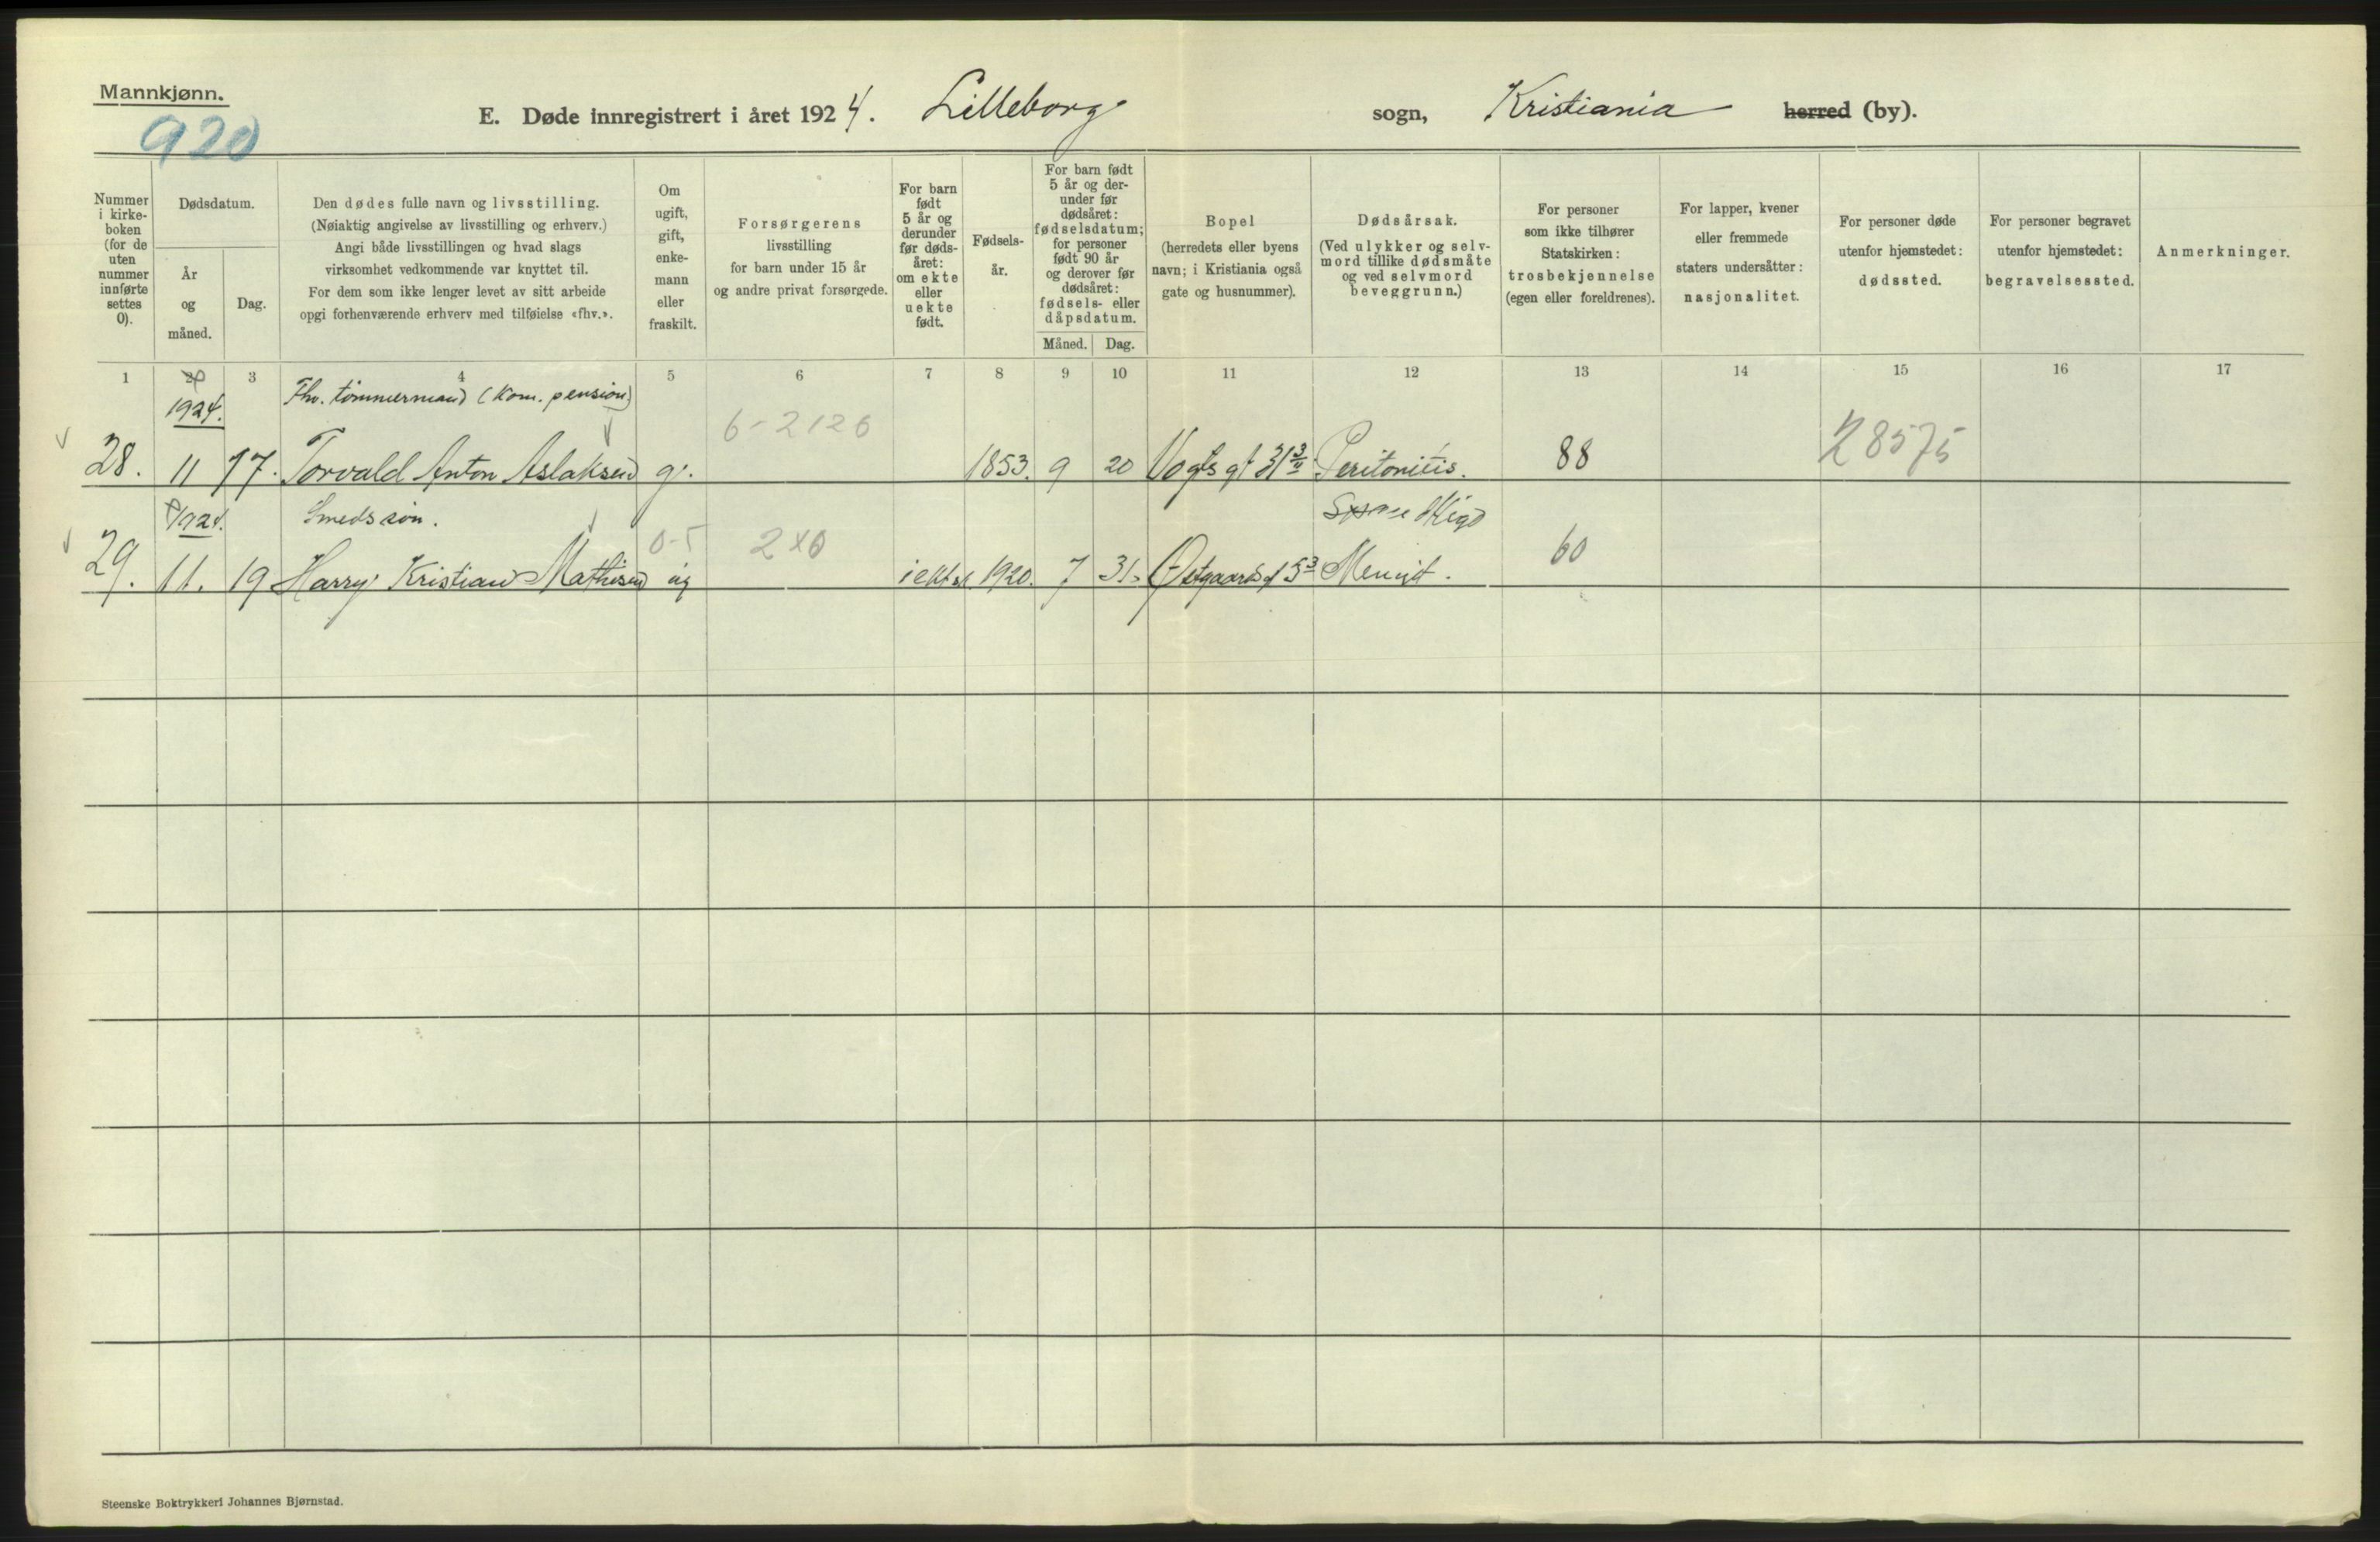 Mannkjønn.
920
E. Døde innregistrert i året 1924. Lilleborg sogn, Kristiania herred (by).
Nummer i kirke- boken (for de uten nummer innførte settes 0).
Dødsdatum.
År og måned.
Dag.
Den dødes fulle navn og livsstilling.
(Nøiaktig angivelse av livsstilling og erhverv.)
Angi både livsstillingen og hvad slags
virksomhet vedkommende var knyttet til.
For dem som ikke lenger levet av sitt arbeide
opgi forhenværende erhverv med tilføielse «fhv.».
Om ugift, gift, enke- mann eller fraskilt.
Forsørgerens
livsstilling
for barn under 15 år
og andre privat forsørgede.
For barn født 5 år og derunder før døds- året: om ekte eller uekte født.
Fødsels- år.
For barn født 5 år og der- under før dødsåret: fødselsdatum; for personer født 90 år og derover før dødsåret: fødsels- eller dåpsdatum.
Måned. Dag.
Bopel
(herredets eller byens
navn; i Kristiania også
gate og husnummer).
Dødsårsak.
(Ved ulykker og selv-
mord tillike dødsmåte
og ved selvmord
beveggrunn.)
For personer
som ikke tilhører
Statskirken:
trosbekjennelse
(egen eller foreldrenes).
For lapper, kvener
eller fremmede
staters undersåtter:
nasjonalitet.
For personer døde
utenfor hjemstedet:
dødssted.
For personer begravet
utenfor hjemstedet:
begravelsessted.
Anmerkninger.
1 3 4 5 6 7 8 9 10 11 12 13 14 15 16 17
1924. Fhv. tømmermand (Kom. pension)
6-2126
28. 11 17. Torvald Anton Aslaksen g. 1853. 9 20 Vogts gt 31 Peritonitis. 88 28575
1924. Smeds søn.
0-5 2x0
29. 11. 19 Harry Kristian Mathisen ug i ektsk. 1920. 7 31. Østgaards gt 5 Meningit. 60
Steenske Boktrykkeri Johannes Bjørnstad.